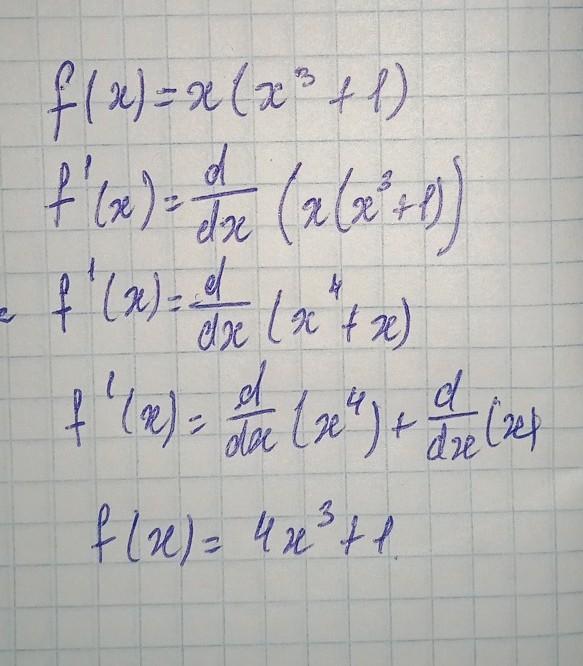 f(x) = x(x³ + 1)
f'(x) = d/dx (x(x³+1))
f'(x) = d/dx (x⁴ + x)
f'(x) = d/dx (x⁴) + d/dx (x)
f(x) = 4x³ + 1.